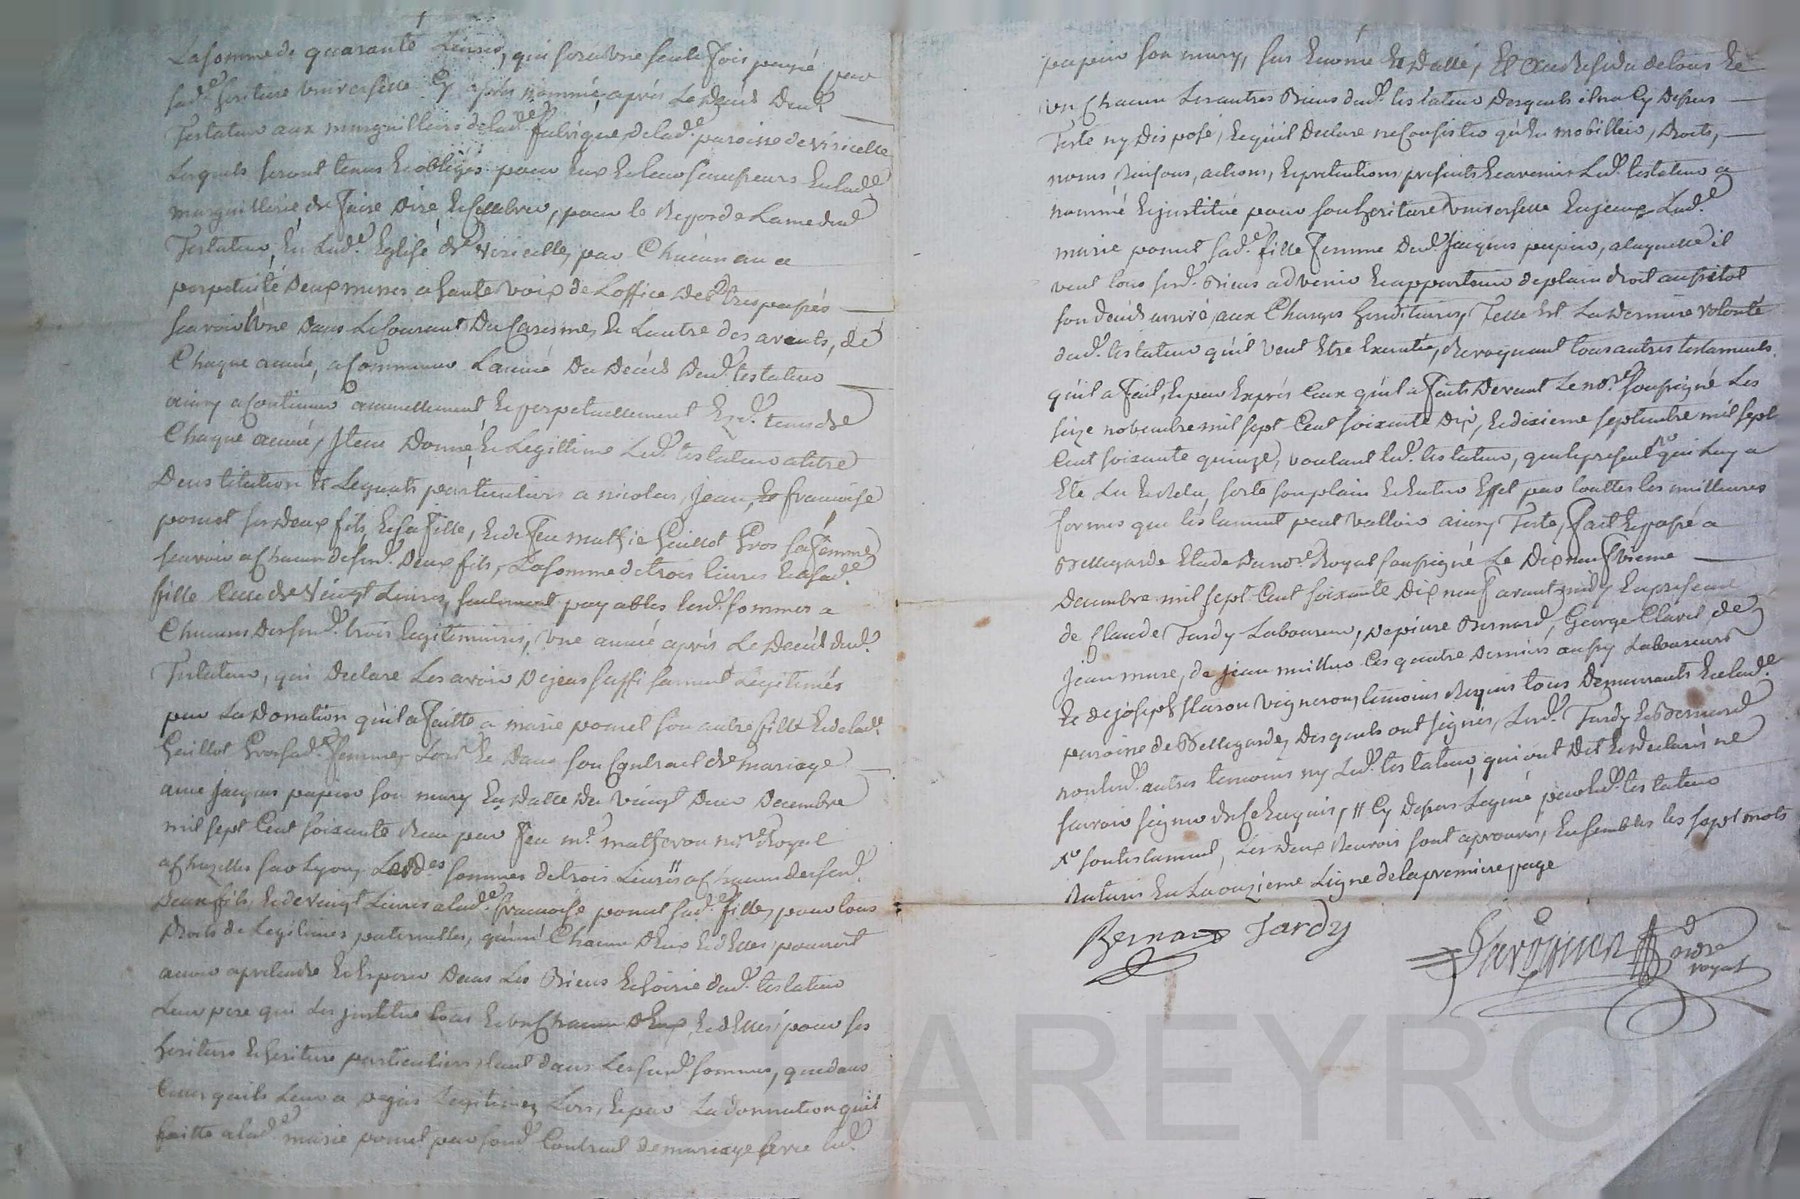 La somme de quarante Livres, qui sera une seule fois payée par
sad.e heritiere universelle cy après nommée, après Le Decès Dud.
Testateur aux marguilliers de lad.e fabrique de lad.e paroisse de viricelle
Lesquels seront tenus et obligés pour eux et leur successeurs en lad.e
marguillerie de faire Dire et Cellebrer, pour le Repos de Lame dud.
Testateur, En Lad.e Eglise de viricelle, par Chacun an a
perpetuité Deux messes a haute voix de L'office Des trespassés
scavoir Une Dans Le Courant Du Caresme, et L'autre des avents, de
Chaque année, a Commencer L'année Du Decès Dud. testateur
ainsy a Continuer annuellement et perpetuellement tems de
Chaque année, Item Donne, et Legittime Led. testateur a titre
D'institution et Legats particuliers a nicolas, Jean, et francoise
poncet ses deux fils, et sa fille, et de feu mathie Guillot Gros sa femme
scavoir a Chacun desd. Deux fils, La somme de trois livres et a sad.e
fille Celle de Vingt Livres, seulement payables lesd. sommes a
Chacuns desd. trois legitimaires, une année après Le Decès dud.
Testateur, qui Declare Les avoir Dejeas suffisament Legitimés
par La Donation qu'il a faitte a marie poncet son autre fille et de lad.
Guillot Gros sad.e femme, Lors et Dans son Contract de mariage
avec Jacques papein son mary En Datte Du vingt Deux Decembre
mil sept Cent soixante Deux par feu m.e matheron no.re Royal
a Chazelles sur Lyon, Lesd.es sommes de trois Livres a Chacun desd.
Deux fils, et de vingt Livres a lad.e francoise poncet sad.e fille, pour tous
Droits de Legitimes paternelles, qu'un Chacun D'eux et d'elles, pourroit
avoir a pretendre et Esperer Dans Les Biens et hoirie dud. testateur
Leur pere qui Les justitue tous et un Chacun d'eux, et d'elles, pour ses
heritiers et heritiere particuliers tant dans Lesd. sommes, que dans
Ceux qu'ils Leur a Dejeas Legitimes Lors, et par La donnation qu'il
faitte a lad.e marie poncet par sond. Contract de mariage avec led.
papein son mary, sus Enoncé et Datté, Et au Residu de tous et
un Chacun Les autres Biens dud. testateur Desquels il n'a Cy Dessus
Testé ny Disposé, et qu'il Declare ne Consister qu'en mobillier, Droits,
noms, Raisons, actions, et pretentions presents et avenir Led. testateur a
nommé et justitué pour son heritiere universelle Lad.e
marie poncet sad.e fille femme dud. Jacques papein, a laquelle il
veut tous sesd. Biens advenir et appartenir de plain droit aussitot
son decès arrivé, aux Charges hereditaires, Telle Est La Derniere volonté
dud. testateur qu'il veut Etre Executée, Revoquant tous autres testaments
qu'il a fait, et par Exprès Ceux qu'il a faits Devant Le no.re soussigné Les
seize novembre mil sept Cent soixante Dix, et dixieme septembre mil sept
Cent soixante quinze, voulant led. testateur, que le present qui Luy a
Eté Lu et Relu, sorte son plain et Entier Effet par touttes les meilleures
formes que testament peut valloir ainsy Testé, fait et passé a
Bellegarde Etude Du no.re Royal soussigné Le Dix neufvieme
Decembre mil sept Cent soixante Dix neuf avant midy En presence
de Claude Tardy Laboureur, de pierre Bernard, George Clavel de
Jean mure, de jean millier Ces quatre Derniers aussy Laboureurs
et de joseph flaron vigneron, temoins Requis tous Demeurants En lad.e
paroisse de Bellegarde, Desquels ont signés, Lesd. Tardy et Bernard
non lesd. autres temoins ny Led. testateur, qui ont Dit et Declaré ne
scavoir signer de ce Enquis, # Cy Dessus Legué par led. testateur
X.o sontestament, Les Deux Renvois sont aprouvés, Ensembles les sept mots
Raturés En La onzieme Ligne de la premiere page
Bernard Tardy
no.re
royal
CHAREYRO